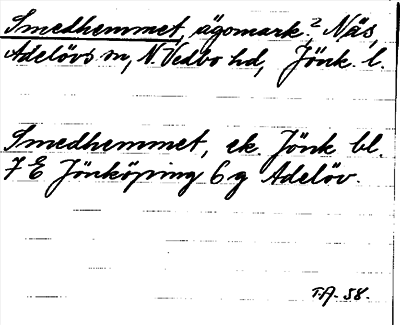 Smedhemmet, ägomark.² Näs,
Adelövs sn, N. Vedbo hd, Jönk. l.
Smedhemmet, ek. Jönk bl.
7 E Jönköping 6 g Adelöv.
T.A. 58.